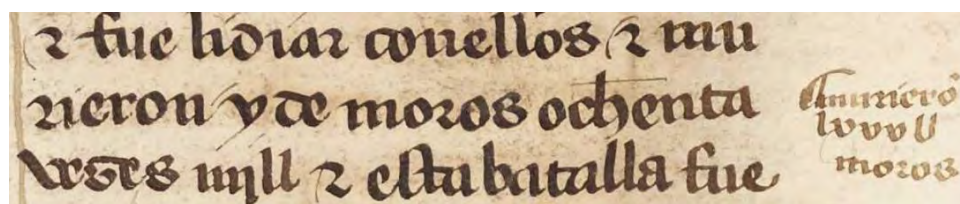 ⁊ fue lidiar conellos ⁊ mu
rieron y de moros ochenta
vezes mjll ⁊ esta batalla fue
murierō
lxxx
moros